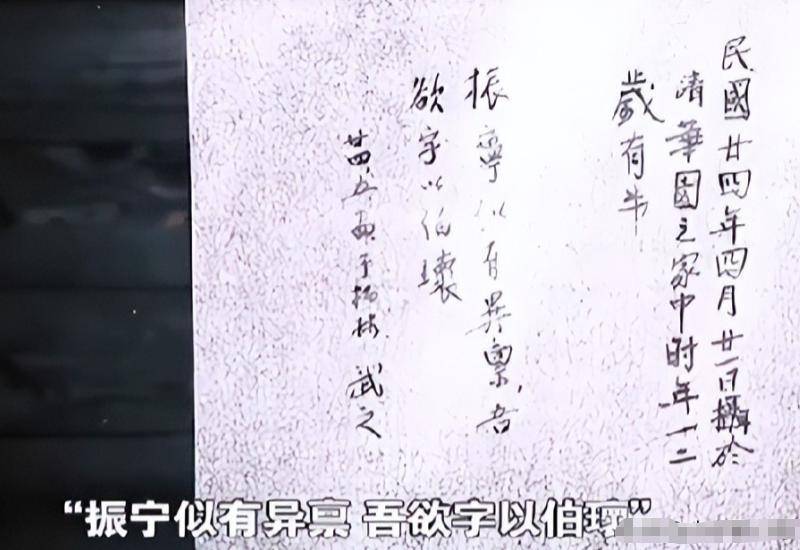 民國廿四年四月廿一日攝於
清華園之家中時年十二
歲有半
振寧似有異稟,吾
欲字以伯瓌
廿四、五、于柏林 武之
“振宁似有异禀 吾欲字以伯”